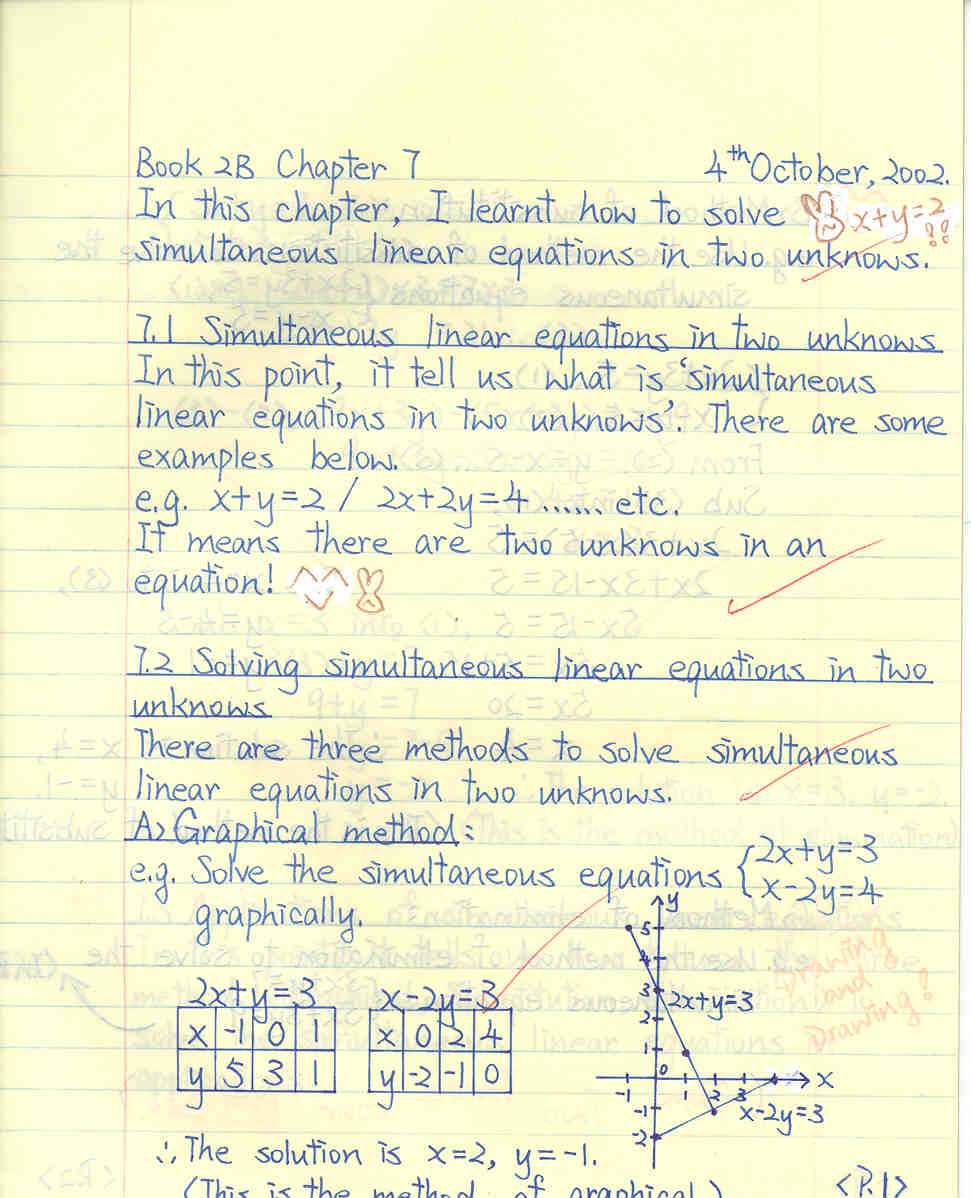 Book 2B Chapter 7 4th October, 2002.
In this chapter, I learnt how to solve x+y=2
simultaneous linear equations in two unknows. !!
7.1 Simultaneous linear equations in two unknows
In this point, it tell us what is 'simultaneous
linear equations in two unknows'. There are some
examples below.
e.g. x+y=2 / 2x+2y=4 ...... etc.
It means there are two unknows in an
equation!
7.2 Solving simultaneous linear equations in two
unknows
There are three methods to solve simultaneous
linear equations in two unknows.
A> Graphical method:
e.g. Solve the simultaneous equations { 2x+y=3
x-2y=4
graphically.
2x+y=3 x-2y=3
x -1 0 1 x 0 2 4
y 5 3 1 y -2 -1 0
y
5
4
3 2x+y=3
2
1
0
-1 2 3 x
-1 x-2y=3
-2
Drawing
and
Drawing!
∴ The solution is x=2, y=-1.
(This is the method of graphical) <R1>